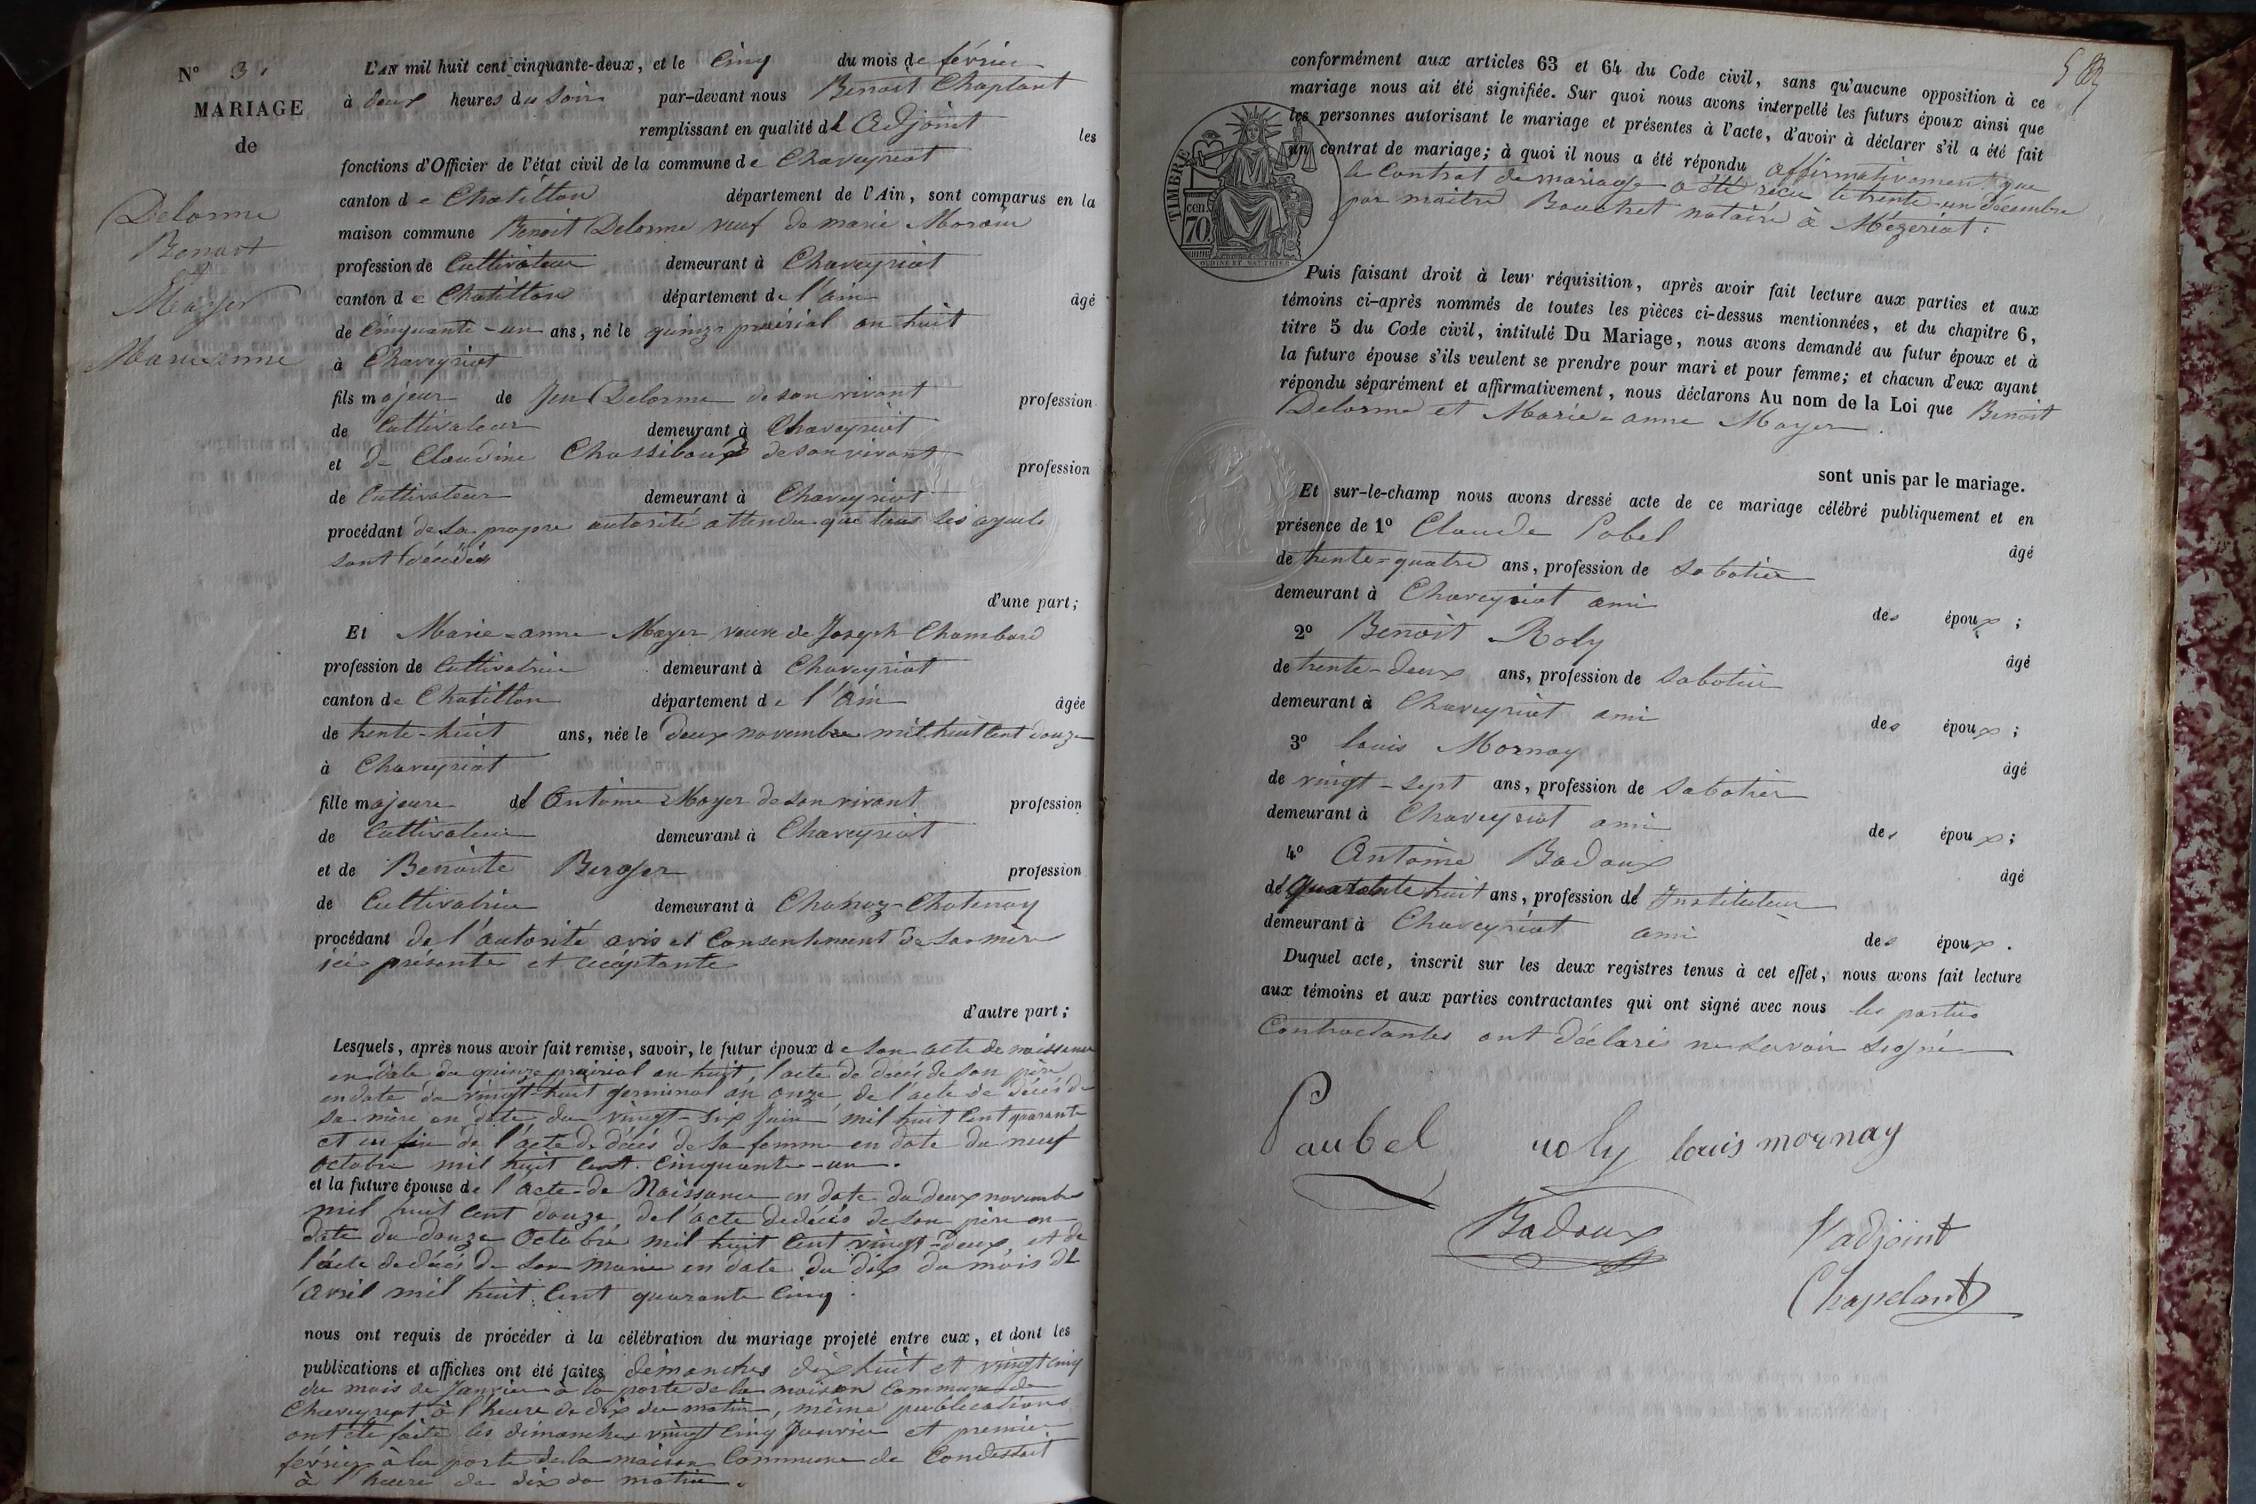 N° 3.
MARIAGE
de
Delorme
Benoit
&
Mayer
Marie anne
L'AN mil huit cent cinquante-deux, et le Cinq du mois de février
à deux heures du Soir par-devant nous Benoit Chaplant
remplissant en qualité de Adjoint les
fonctions d'Officier de l'état civil de la commune de Chaveyriat
canton de Chatillon département de l'Ain, sont comparus en la
maison commune Benoit Delorme veuf de marie Morain
profession de Cultivateur demeurant à Chaveyriat
canton de Chatillon département de l'ain âgé
de Cinquante-un ans, né le quinze prairial an huit
à Chaveyriat
fils majeur de Jean Delorme de son vivant profession
de Cultivateur demeurant à Chaveyriat
et de Claudine Chassiboux de son vivant profession
de Cultivateur demeurant à Chaveyriat
procédant de sa propre autorité attendu que tous ses ayeuls
sont décédés
d'une part;
Et Marie-anne Mayer veuve de Joseph Chambard
profession de Cultivatrice demeurant à Chaveyriat
canton de Chatillon département de l'Ain âgée
de trente-huit ans, née le deux novembre mil huit Cent douze
à Chaveyriat
fille majeure de Antoine Mayer de son vivant profession
de Cultivateur demeurant à Chaveyriat
et de Benoite Berger profession
de Cultivatrice demeurant à Chanoz-Chatenay
procédant de l'autorité avis et Consentement de sa mère
ici présente et acceptante
d'autre part;
Lesquels, après nous avoir fait remise, savoir, le futur époux de son acte de naissance
en date du quinze prairial an huit, l'acte de decés de son père
en date du vingt-huit germinal an onze de l'acte de décés de
sa mère en date du vingt-six Juin mil huit Cent quarante
et enfin de l'acte de décés de sa femme en date du neuf
Octobre mil huit Cent Cinquante-un.
et la future épouse de l'acte de Naissance en date du deux novembre
mil huit cent douze de l'acte de décés de son père en
date du douze Octobre mil huit Cent vingt-deux, et de
l'acte de décés de son Marie en date du dix du mois de
Avril mil huit Cent quarante Cinq.
nous ont requis de procéder à la célébration du mariage projeté entre eux, et dont les
publications et affiches ont été faites démanches dix huit et vingt cinq
du mois de Janvier à la porte de la maison Commune de
Chaveyriat à l'heure de dix du matin, même publications
ont été faite les dimanches vingt Cinq Janvier et premier
février à la porte de la maison Commune de Condessiat
à l'heure de dix du matin.
conformément aux articles 63 et 64 du Code civil, sans qu'aucune opposition à ce
mariage nous ait été signifiée. Sur quoi nous avons interpellé les futurs époux ainsi que
les personnes autorisant le mariage et présentes à l'acte, d'avoir à déclarer s'il a été fait
un contrat de mariage; à quoi il nous a été répondu affirmativement que
le Contrat de mariage a été recu le trente-un décembre
par maitre Bouchet notaire à Mézeriat.
TIMBRE
70 cen
OUDINE ET SALTHIER
Puis faisant droit à leur réquisition, après avoir fait lecture aux parties et aux
témoins ci-après nommés de toutes les pièces ci-dessus mentionnées, et du chapitre 6,
titre 5 du Code civil, intitulé Du Mariage, nous avons demandé au futur époux et à
la future épouse s'ils veulent se prendre pour mari et pour femme; et chacun d'eux ayant
répondu séparément et affirmativement, nous déclarons Au nom de la Loi que Benoit
Delorme et Marie-anne Mayer.
sont unis par le mariage.
Et sur-le-champ nous avons dressé acte de ce mariage célébré publiquement et en
présence de 1° Claude Pobel âgé
de trente-quatre ans, profession de sabotier
demeurant à Chaveyriat ami des époux;
2° Benoit Roly âgé
de trente-deux ans, profession de sabotier
demeurant à Chaveyriat ami des époux;
3° louis Mornay âgé
de vingt-sept ans, profession de sabotier
demeurant à Chaveyriat ami des époux;
4° Antoine Badoux âgé
de quarante huit ans, profession de Instituteur
demeurant à Chaveyriat ami des époux.
Duquel acte, inscrit sur les deux registres tenus à cet effet, nous avons fait lecture
aux témoins et aux parties contractantes qui ont signé avec nous les parties
Contractantes ont déclaré ne savoir signé
Paubel roly louis mornay
Badoux l'adjoint
Chapelant